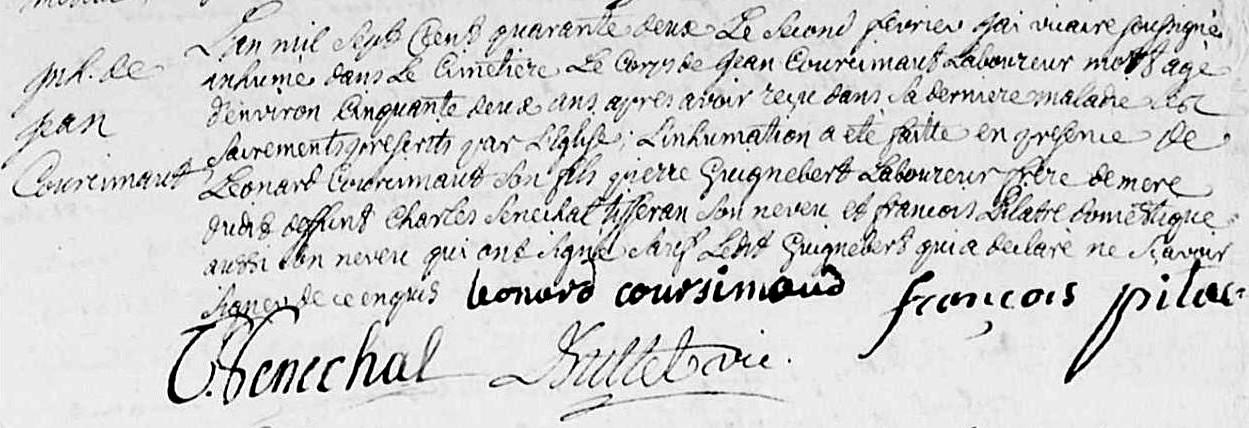 inh. de
jean
Coursimault
L'an mil sept Cent quarante deux Le second fevrier jai vicaire soussigné
inhumé dans Le Cimetiere Le corps de jean Coursimault Laboureur mort agé
d'environ Cinquante deux ans apres avoir reçu dans sa derniere maladie les
sacrements prescrits par L'eglise ; L'inhumation a eté faitte en presence de
Leonard Coursimault son fils pierre Guignebert Laboureur frere de mere
dudit deffunt Charles Senechal tisseran son neveu et francois Pilatre domestique
aussi son neveu qui ont signé sauf Ledit Guignebert qui a declaré ne sçavoir
signer de ce enquis leonard coursimaud françois pilat
C. Senechal vic.